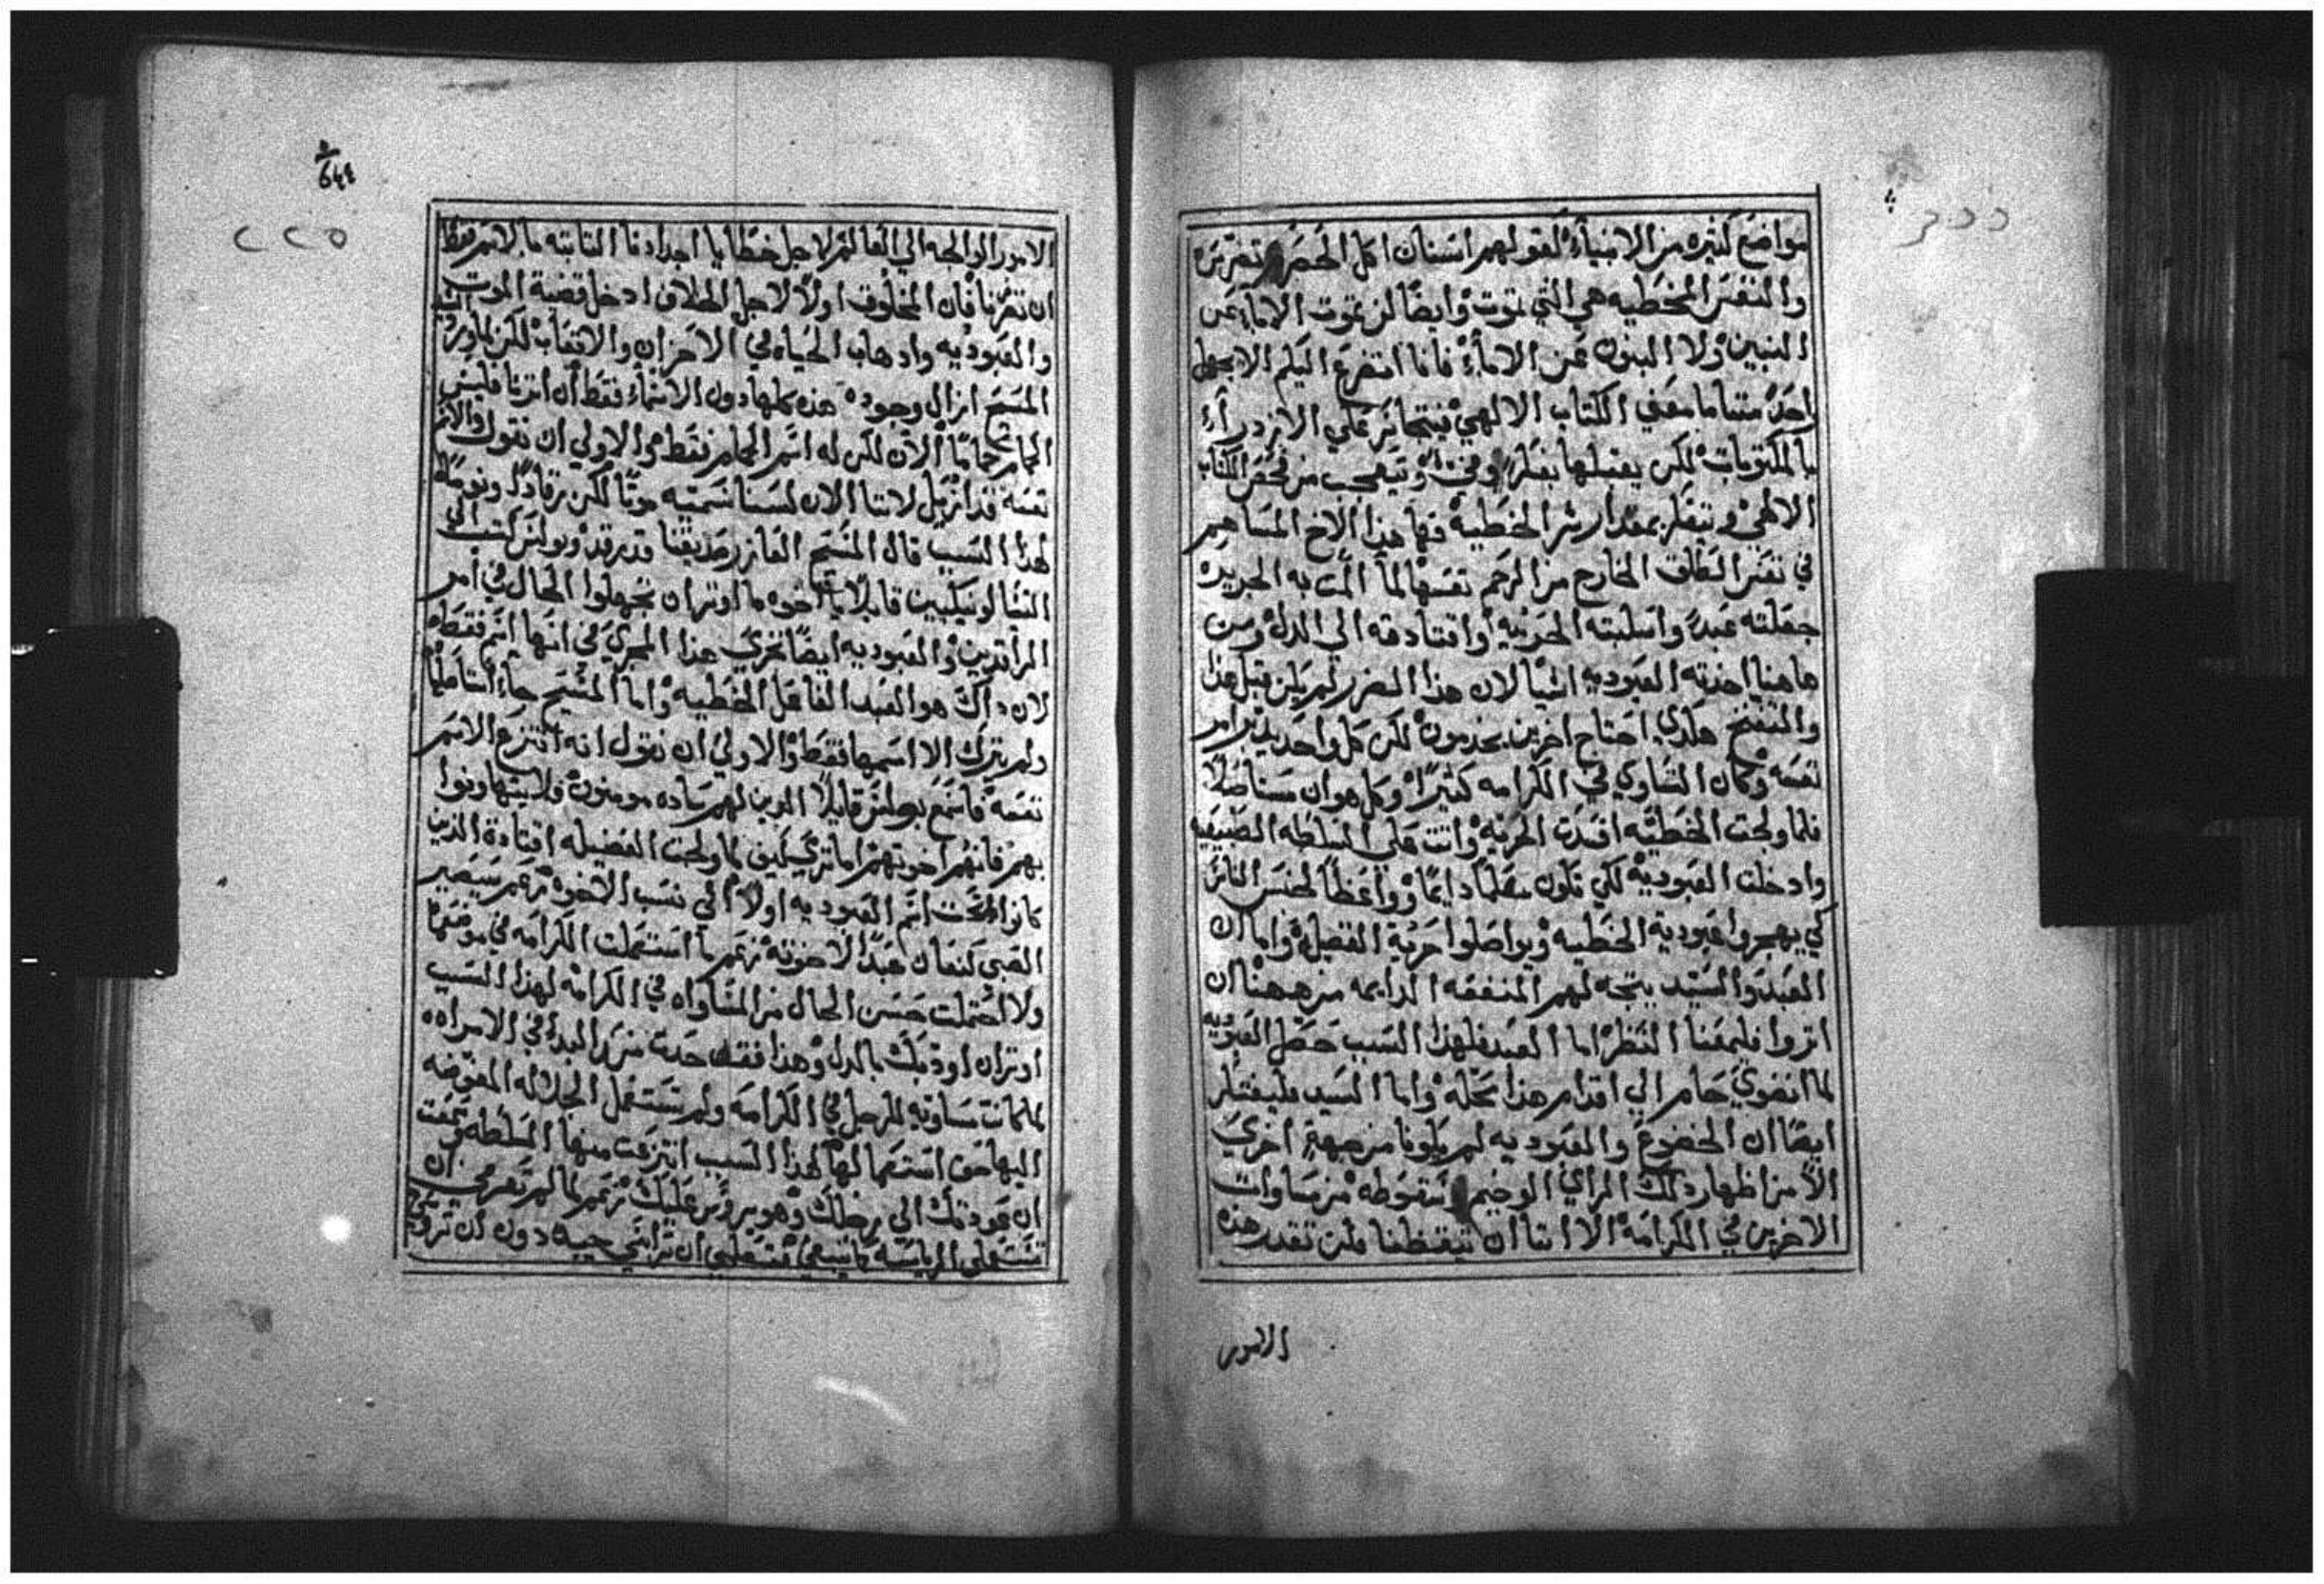 مواضع كثيره من الانبياء كقولهم اسنان اكل الحصرم تضرس
والنفس المخطيه هي التي تموت وايضا لن تموت الاباء عن
البنين ولا البنون عن الاباء فانا اتضرع اليكم الا يجهل
احد متاما معني الكتاب الالهي فيتجاسر علي الازدراء
بالمكتوبات لكن يقبلها بفكر وفي ويتعجب من فحص الكتاب
الالهي ويتفكر بمقدار شر الخطيه فها هذا الاخ المساهم
في نفس الطلق الخارج من الرحم نفسها لما المت به الجريره
جعلته عبدا واسلبته الحريه واقتادته الي الذل ومن
هاهنا اخذته العبوديه اشيا لان هذا الضرر لم يكن قبل هذا
والتنفخ هكذي احتاج اخرين يخدمون لكن كل واحد يدبر امر
نفسه وكان التساوي في الكرامه كثيرا وكل هوان مستاصلا
فلما ولجت الخطيه افسدت الحريه واتت علي السلطه الطبيعيه
وادخلت العبوديه لكي تكون معلما دايما وواعظا لجنس الناس
كي يهجروا عبودية الخطيه ويواصلوا حرية الفضيله واما ان
العبد والسيد يتجه لهم المنفعه الدايمه من ههنا ان
اثروا فليمعنا النظر اما العبد فلهذا السبب حصل العبوديه
لما انضوي حام الي اقدام هذا محله واما السيد فليفتكر
ايضا ان الخضوع والعبوديه لم يكونا من جهة اخري
الا من اظهار ذلك الراي الوخيم وسقوطه من مساوات
الاخرين في الكرامه الا اننا ان تيقظنا فلن تقدر هذه
الامور
الامور الوالجه الي العالم لاجل خطايا اجدادنا الثابته بالاسم فقط
ان تضرنا فان المخلوق اولا لاجل الخلاف ادخل قضية الموت
والعبوديه واذهاب الحياه في الاحزان والاتعاب لكن لما ورد
المسيح ازال وجود هذه كلها دون الاسماء فقط ان اثرنا فليس
الحمام حماما الان لكن له اسم الحمام فقط والاولي ان نقول والاسم
نفسه قد ازيل لاننا الان لسنا نسميه موتا لكن رقادا ونوما
لهذا السبب قال المسيح العازر صديقنا قد رقد وبولس كتب الي
التسالونيكيين قايلا يا اخوه ما اوثر ان تجهلوا الحال في امر
الراقدين والعبوديه ايضا تجري هذا المجري في انها اسم فقط
لان ذاك هو العبد الفاعل الخطيه واما المسيح جاء
ولم يترك الا اسمها فقط والاولي ان نقول انه انتزع الاسم
نفسه فاسمع بولس قايلا الذين لهم ساده مومنون ولا يتهاونوا
بهم فانهم اخوتهم اما تري كيف لما ولجت الفضيله اقتادة الذين
كانوا تحت اسم العبوديه اولا الي نسب الاخوه زعم سيصير
الصبي كنعان عبدا لاخوته زعم ما استعملت الكرامه في موضعها
ولا احتملت حسن الحال من المساواه في الكرامه لهذا السبب
اوثر ان اودبك بالذل وهذا فقد حدث منذ البدء في الامراه
لما كانت مساويه للرجل في الكرامه ولم تستعمل الجلاله المفوضه
اليها حق استعمالها لهذا السبب انتزعت منها السلطه وسمعت
ان عودتك الي رجلك وهو يروس عليك زعم لما لم تعرفي ان
تستعملي الرياسه كما ينبغي ان تراسي جيدا دون ان تروسي